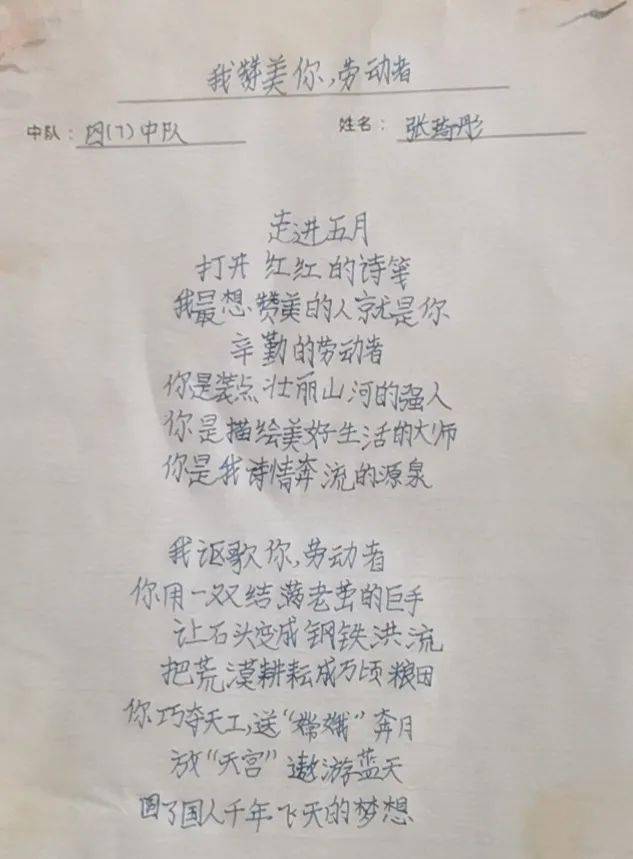 我赞美你,劳动者
中队:四(7)中队 姓名:张琦彤
走进五月
打开红红的诗笺
我最想赞美的人就是你
辛勤的劳动者
你是装点壮丽山河的强人
你是描绘美好生活的大师
你是我诗情奔流的源泉
我讴歌你,劳动者
你用一双结满老茧的巨手
让石头变成钢铁洪流
把荒漠耕耘成万顷粮田
你巧夺天工,送“嫦娥”奔月
放“天宫”遨游蓝天
圆了国人千年飞天的梦想